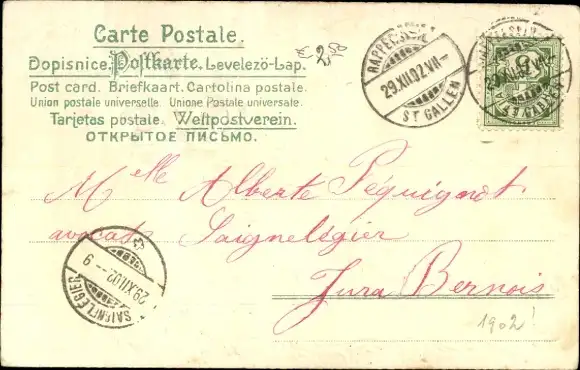 Carte Postale.
Dopisnice. Postkarte. Levelező-Lap.
Post card. Briefkaart. Cartolina postale.
Union postale universelle. Unione Postale universale.
Tarjetas postale. Weltpostverein.
ОТКРЫТОЕ ПИСЬМО.
€ 2,50
29.XII.02.VII-
ST GALLEN
5
Mlle Alberte Péquignot
avocat Saignelégier
Jura Bernois
29.XII.02.-9
SAIGNELÉGIER
1902!